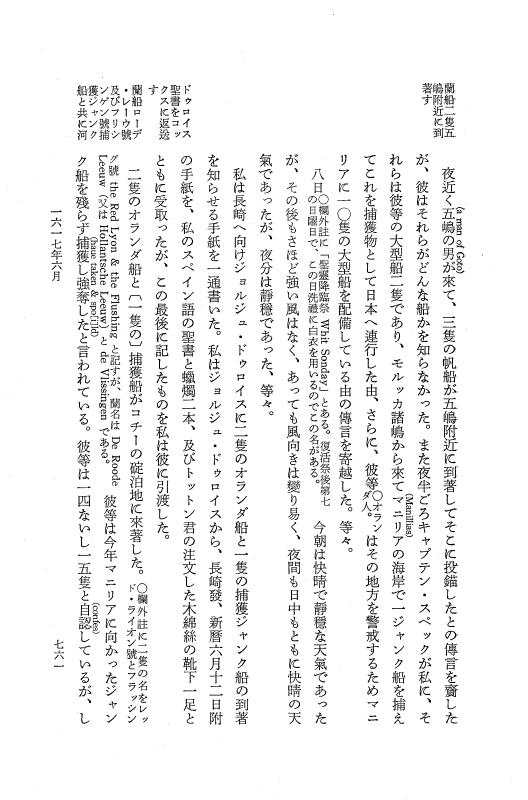 蘭船二隻五
嶋附近に到
著す
夜近く五嶋の男(a man of Goto)が來て、三隻の帆船が五嶋附近に到著してそこに投錨したとの傳言を齎した
が、彼はそれらがどんな船かを知らなかった。また夜半ごろキャプテン・スペックが私に、そ
れらは彼等の大型船二隻であり、モルッカ諸嶋から來てマニリア(Manillias)の海岸で一ジャンク船を捕え
てこれを捕獲物として日本へ連行した由、さらに、彼等○オランダ人。はその地方を警戒するためマニ
リアに一〇隻の大型船を配備している由の傳言を寄越した。等々。
八日○欄外註に「聖靈降臨祭 Whit Sonday」とある。復活祭後第七の日曜日で、この日洗禮に白衣を用いるのでこの名がある。 今朝は快晴で靜穩な天氣であった
が、その後もさほど強い風はなく、あっても風向きは變り易く、夜間も日中もともに快晴の天
氣であったが、夜分は靜穩であった、等々。
ドゥロイス
聖書をコッ
クスに返送
す
私は長崎へ向けジョルジュ・ドゥロイスに二隻のオランダ船と一隻の捕獲ジャンク船の到著
を知らせる手紙を一通書いた。私はジョルジュ・ドゥロイスから、長崎發、新曆六月十二日附
の手紙を、私のスペイン語の聖書と蠟燭二本、及びトットン君の注文した木綿絲の靴下一足と
ともに受取ったが、この最後に記したものを私は彼に引渡した。
蘭船ローデ
・レーウ號
及びフリシ
ンゲン號捕
獲ジャンク
船と共に河
二隻のオランダ船と〔一隻の〕捕獲船がコチーの碇泊地に來著した。○欄外註に二隻の名をレッド・ライオン號とフラッシン
グ號 the Red Lyon & the Flushing と記すが、蘭名は De Roode Leeuw (又は Hollantsche Leeuw) と de Vlissingen である。 彼等は今年マニリアに向かったジャン
ク船を殘らず捕獲し強奪した(haue taken & spoiled)と言われている。彼等は一四ないし一五隻と自認(confes)しているが、し
一六一七年六月
七六一